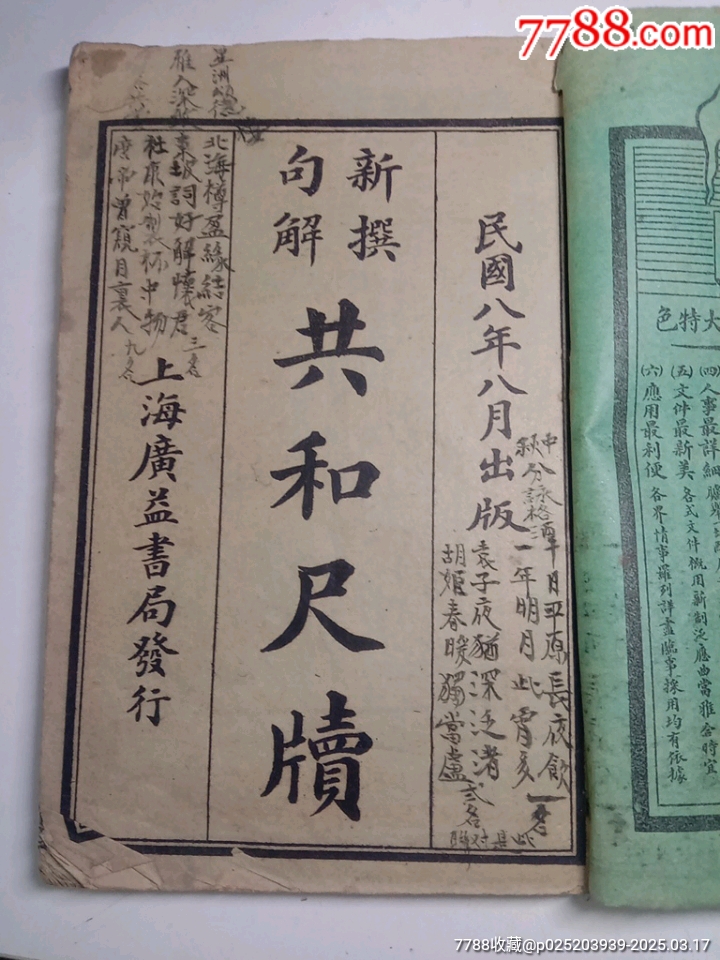 7788.com
民國八年八月出版
新撰
句解
共和尺牘
上海廣益書局發行
中秋
分詠格
十日平原長夜飲
一年明月此宵多
袁子夜猶深泛渚
胡姬春暖獨當盧
北海樽盈緣結客
東坡詞好解懷君
社康始製杯中物
唐帝曾窺月裏人
三名
大特色
(四)人事最詳細
(五)文件最新美
各式文件概用新制泛應曲當雅合時宜
(六)應用最利便
各界情事羅列詳盡臨事採用均有依據
7788收藏@p025203939-2025.03.17